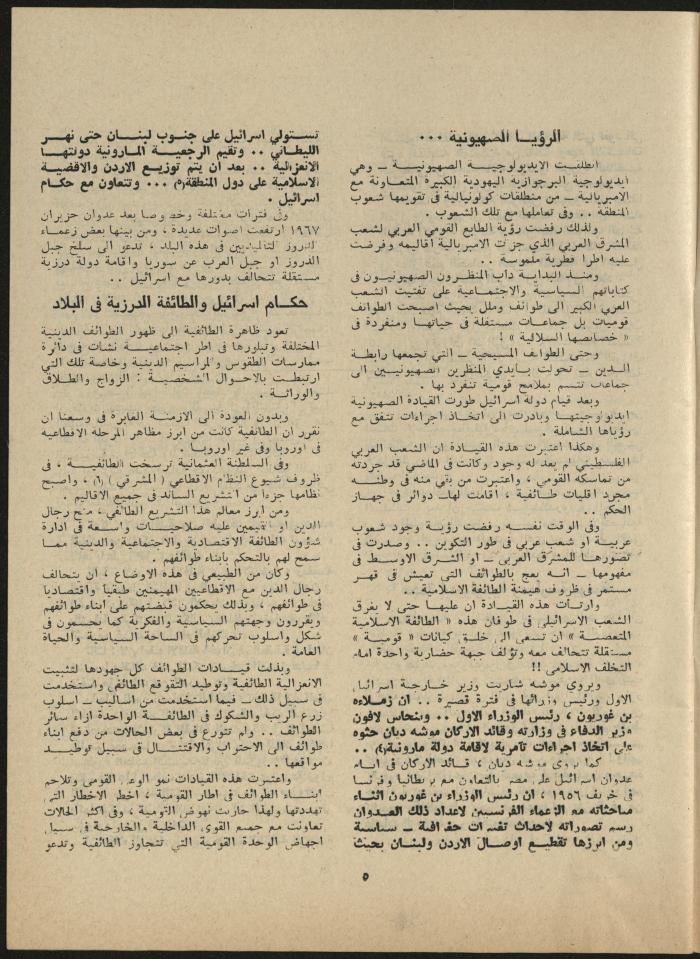 الرؤيــا الصهيونية ...
انطلقت الايديولوجيــة الصهيونيــة ــ وهي
ايديولوجية البرجوازية اليهودية الكبيرة المتعاونة مع
الامبريالية ــ من منطلقات كولونيالية في تقويمها شعوب
المنطقة .. وفى تعاملها مع تلك الشعوب .
ولذلك رفضت رؤية الطابع القومي العربي لشعب
المشرق العربي الذي جزأت الامبريالية اقاليمه وفرضت
عليه اطرا قطرية ملموسة ..
ومنــذ البدايــة دأب المنظــرون الصهيونيــون فى
كتاباتهم السياسية والاجتماعية على تفتيت الشعب
العربي الكبير الى طوائف وملل بحيث اصبحت الطوائف
قوميات بل جماعــات مستقلة في حياتهــا ومنفردة في
« خصائصها السلالية » !
وحتى الطوائف المسيحية ــ التي تجمعها رابطــة
الــدين ــ تحولت بــايدي المنظرين الصهيونيــين الى
جماعات تتسم بملامح قومية تنفرد بها .
وبعد قيام دولة اسرائيل طورت القيادة الصهيونية
ايديولوجيتهــا وبادرت الى اتخــاذ اجراءات تتفق مع
رؤياها الشاملة .
وهكذا اعتبرت هذه القيــادة ان الشعب العربي
الفلسطيني لم يعد له وجود وكانت في الماضي قد جردته
من تماسكه القومي ، واعتبرت من بقي منه فى وطنــه
مجرد اقليات طــائفية ، اقامت لهــا دوائر في جهــاز
الحكم ..
وفى الوقت نفســه رفضت رؤيــة وجود شعوب
عربيــة او شعب عربي في طور التكوين .. وصدرت في
تصورهــا للمشرق العربي ــ او الشــرق الاوسط في
مفهومها ــ انــه يعج بالطوائف التي تعيش في قهــر
مستمر في ظروف هيمنة الطائفة الاسلامية ..
وارتــأت هذه القيــادة ان عليهــا حتى لا يغرق
الشعب الاسرائيلي في طوفان هذه « الطائفة الاسلامية
المتعصبــة » ان تسعى الى خلــق كيانات « قومية »
مستقلة تتحالف معه وتؤلف جبهة حضارية واحدة امام
التخلف الاسلامي !!
ويروي موشه شاريت وزير خــارجية اسرائيل
الاول ورئيس وزرائها في فترة قصيرة .. ان زمــلاءه
بن غوريون ، رئيس الوزراء الاول .. وبنحاس لافون
وزير الدفاع في وزارته وقائد الاركان موشه ديان حثوه
على اتخاذ اجراءات تآمرية لاقامة دولة مارونية(٤) ..
كما يروي موشه ديان ، قــائد الاركان في ايــام
عدوان اسرائيل على مصر بالتعاون مع بريطانيا وفرنسا
في خريف ١٩٥٦ ، ان رئيس الوزراء بن غوريون اثنــاء
مباحثاته مع الزعماء الفرنسيين لاعداد ذلك العــدوان
رسم تصوراته لاحداث تغييرات جغرافيــة ــ سياســية
ومن ابرزها تقطيــع اوصــال الاردن ولبنــان بحيث
تســتولي اسرائيل على جنوب لبنــان حتى نهــر
الليطاني .. وتقيم الرجعيــة المارونية دولتهــا
الانعزالية .. بعد ان يتم توزيــع الاردن والاقضيــة
الاسلامية على دول المنطقة(٥) ... وتتعاون مع حكــام
اسرائيل .
وفى فترات مختلفة وخصوصا بعد عدوان حزيران
١٩٦٧ ارتفعت اصوات عديدة ، ومن بينها بعض زعمــاء
الدروز التقليديين في هذه البلد ، تدعو الى سلخ جبل
الدروز او جبل العرب عن سوريا واقامة دولة درزية
مستقلة تتحالف بدورها مع اسرائيل ..
حكــام اسرائيل والطائفة الدرزية فى البلاد
تعود ظاهرة الطائفية الى ظهور الطوائف الدينية
المختلفة وتبلورها في اطر اجتماعيــة نشأت في دائرة
ممارسات الطقوس والمراسيم الدينية وخاصة تلك التي
ارتبطت بالاحــوال الشخصيــة : الزواج والطــلاق
والوراثة .
وبدون العودة الى الازمنــة الغابرة فى وسعنا ان
نقرر ان الطائفية كانت من ابرز مظاهر المرحلة الاقطاعية
في اوروبا وفى غير اوروبــا .
وفى السلطنة العثمانية ترسخت الطائفيــة ، فى
ظروف شيوع النظام الاقطاعي ( المشرقي ) (٦) ، واصبح
نظامها جزءا من التشريع السائد في جميع الاقاليم .
ومن ابرز معالم هذا التشريع الطائفي ، منح رجال
الدين او القيمين عليه صلاحيــات واسعــة في ادارة
شؤون الطائفة الاقتصادية والاجتماعية والدينية ممــا
سمح لهم بالتحكم بأبناء طوائفهم .
وكان من الطبيعي في هذه الاوضاع ، ان يتحالف
رجال الدين مع الاقطاعيين المهيمنين طبقيا واقتصاديا
في طوائفهم ، وبذلك يحكمون قبضتهم على ابناء طوائفهم
ويقررون وجهتهم السياسية والفكرية كما يحسمون فى
شكل واسلوب تحركهم في الساحة السياسية والحياة
العامة .
وبذلت قيــادات الطوائف كل جهودها لتثبيت
الانعزالية الطائفية وتوطيد التقوقع الطائفي واستخدمت
في سبيل ذلك ــ فيما استخدمت من اساليب ــ اسلوب
زرع الريب والشكوك في الطائفــة الواحدة ازاء سائر
الطوائف .. ولم تتورع في بعض الحالات من دفع ابناء
طوائف الى الاحتراب والاقتتــال في سبيل توطيــد
مواقعها ..
واعتبرت هذه القيادات نمو الوعي القومي وتلاحم
ابنــاء الطوائف في اطار القومية ، اخطر الاخطار التي
تهددتها ولهذا حاربت نهوض القومية ، وفى اكثر الحالات
تعاونت مع جميع القوى الداخلية والخارجية في سبيل
اجهاض الوحدة القومية التي تتجاوز الطائفية وتدعو
٥